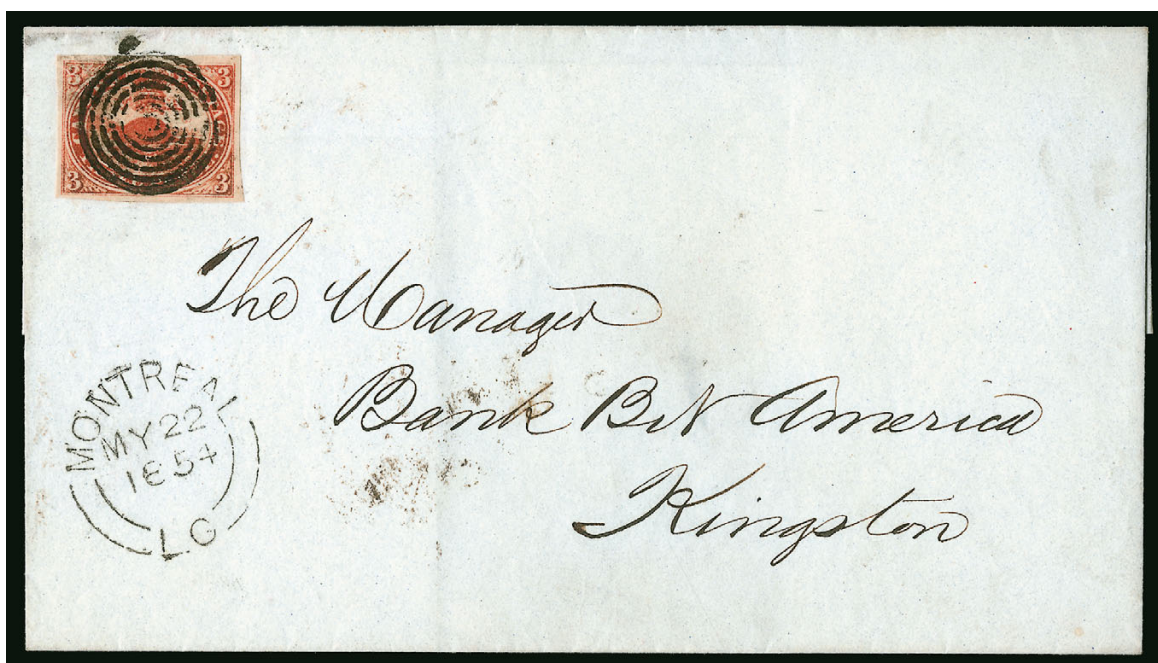 3 3
3 3
The Manager
Bank Bt N America
Kingston
MONTREAL
MY 22
1854
L.C.